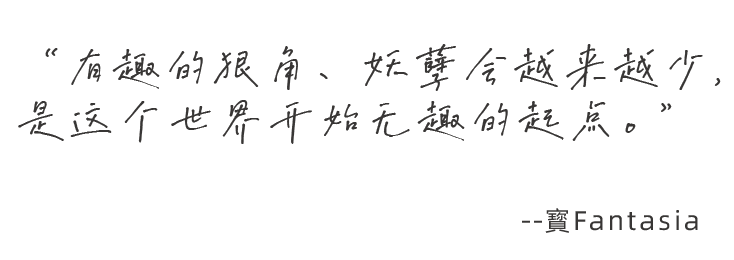 “有趣的狠角、妖孽会越来越少，
是这个世界开始无趣的起点。”
--寳Fantasia